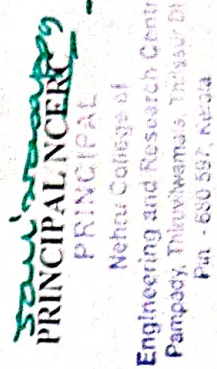 PRINCIPAL NCERC
PRINCIPAL
Nehru College of
Engineering and Research Centr
Pampady, Thiruvilwamala, Thrissur Di
Pin - 680 597, Kerala